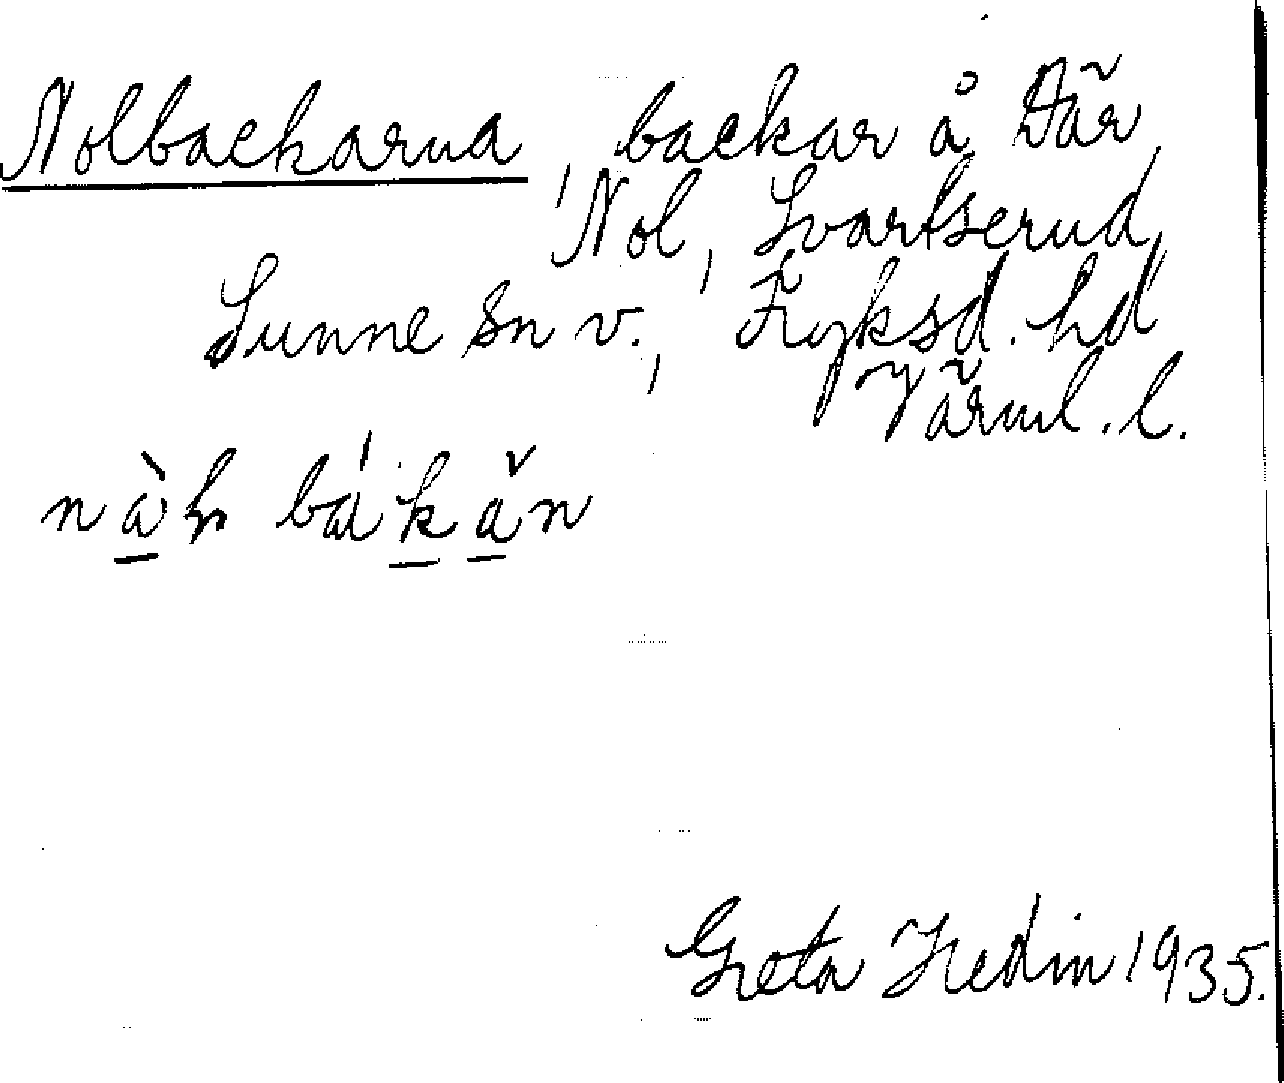 Nolbackarna, backar å Där
Nol, Svartserud,
Sunne sn v., Fryksd. hd
Värml. l.
nàh bákăn
Greta Hedin 1935.